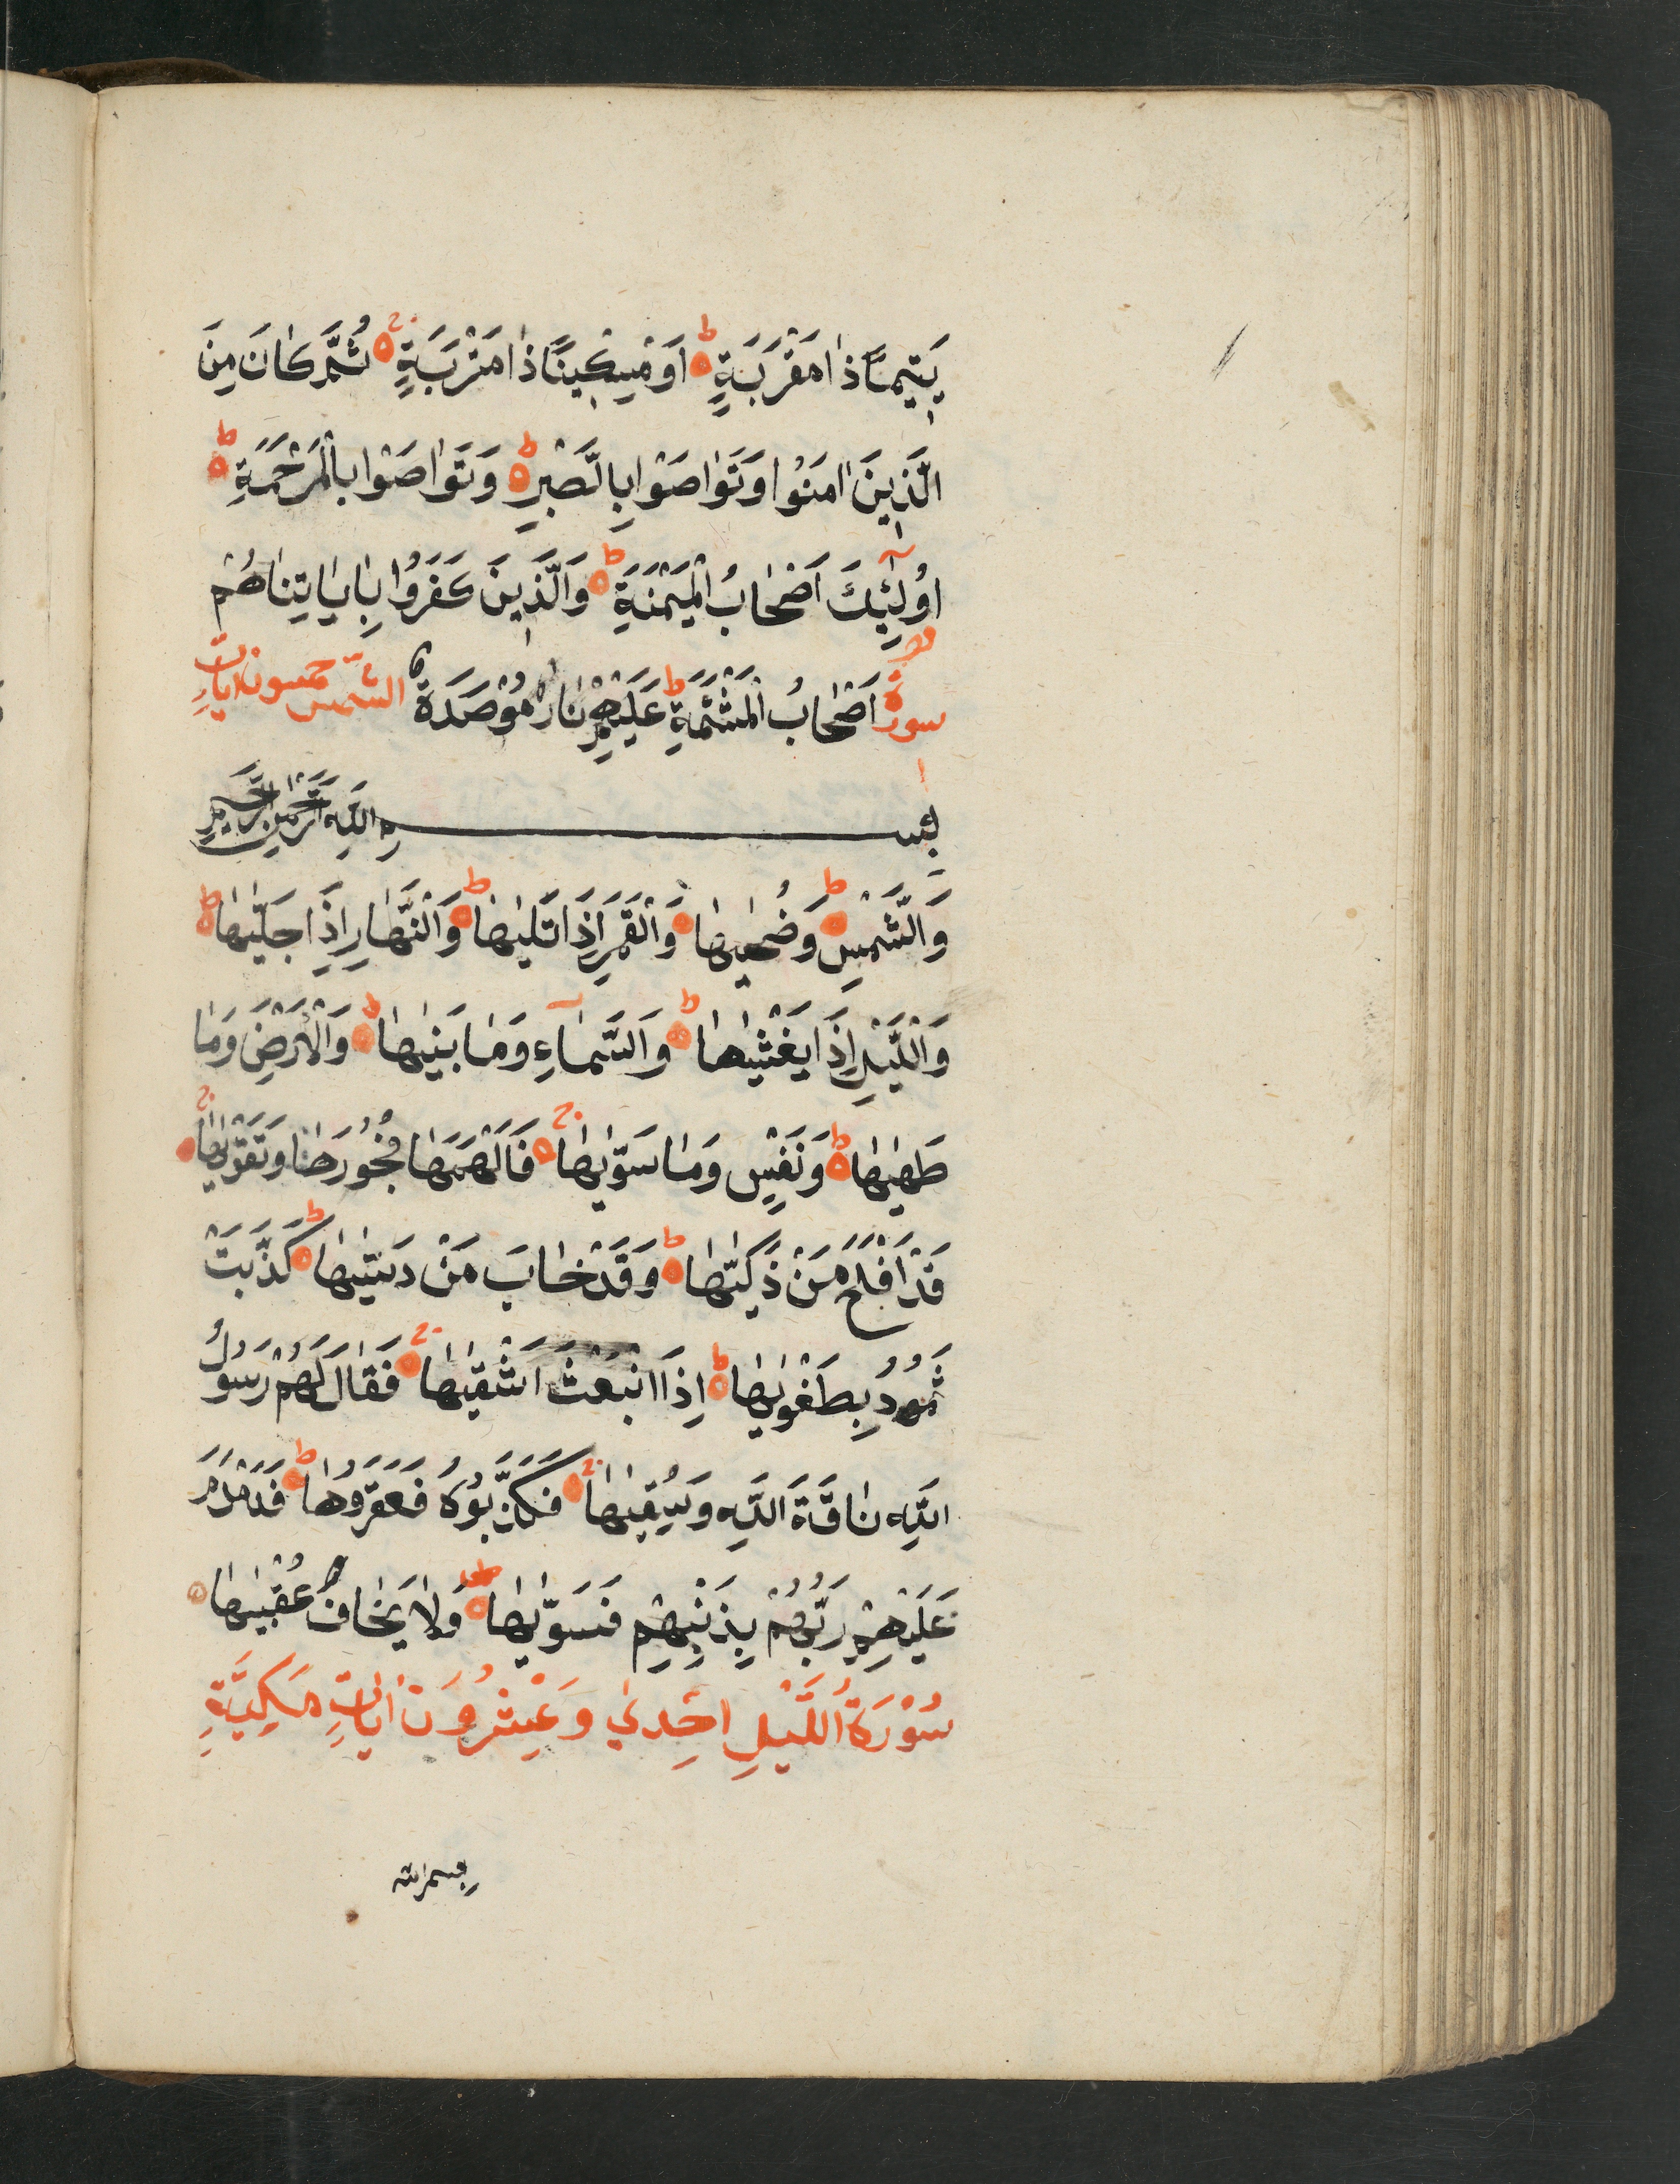 يَتِيمًا ذَا مَقْرَبَةٍ ط اَوْ مِسْكِينًا ذَا مَتْرَبَةٍ ج ثُمَّ كَانَ مِنَ
الَّذِينَ اٰمَنُوا وَتَوَاصَوْا بِالصَّبْرِ ط وَتَوَاصَوْا بِالْمَرْحَمَةِ ط
اُولٰئِكَ اَصْحَابُ الْمَيْمَنَةِ ط وَالَّذِينَ كَفَرُوا بِاٰيَاتِنَا هُمْ
اَصْحَابُ الْمَشْئَمَةِ ط عَلَيْهِمْ نَارٌ مُؤْصَدَةٌ
سورة الشمس خمسون ايات
بِسْمِ اللّٰهِ الرَّحْمٰنِ الرَّحِيمِ
وَالشَّمْسِ ط وَضُحٰيهَا وَالْقَمَرِ اِذَا تَلٰيهَا ط وَالنَّهَارِ اِذَا جَلّٰيهَا ط
وَالَّيْلِ اِذَا يَغْشٰيهَا ط وَالسَّمَآءِ وَمَا بَنٰيهَا ط وَالْاَرْضِ وَمَا
طَحٰيهَا ط وَنَفْسٍ وَمَا سَوّٰيهَا ج فَاَلْهَمَهَا فُجُورَهَا وَتَقْوٰيهَا ج
قَدْ اَفْلَحَ مَنْ ذَكّٰيهَا ط وَقَدْ خَابَ مَنْ دَسّٰيهَا ط كَذَّبَتْ
ثَمُودُ بِطَغْوٰيهَا ط اِذَا انْبَعَثَ اَشْقٰيهَا ج فَقَالَ لَهُمْ رَسُولُ
اللّٰهِ نَاقَةَ اللّٰهِ وَسُقْيٰهَا ج فَكَذَّبُوهُ فَعَقَرُوهَا ط فَدَمْدَمَ
عَلَيْهِمْ رَبُّهُمْ بِذَنْبِهِمْ فَسَوّٰيهَا وَلَا يَخَافُ عُقْبٰيهَا
سُوْرَةُ اللَّيْلِ اِحْدٰي وَعِشْرُونَ اٰيَاتٍ مَكِيَّةٍ
بسم الله